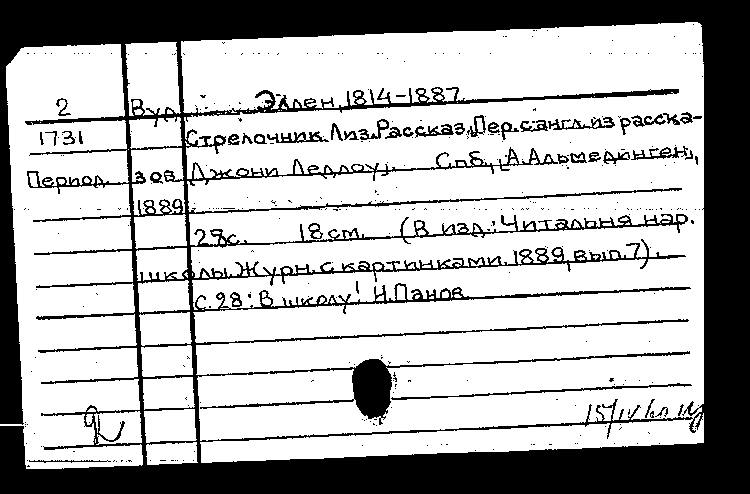 2 Вуд, Эллен, 1814-1887
1731 Стрелочник Лиз. Рассказ. Пер. с англ. из расска-
Период. зов Джони Ледлоу. Спб., [А. Альмединген],
1889.
28с. 18см. (В изд.: Читальня нар.
школы. Журн. с картинками. 1889, вып. 7).
С. 28: В школу! Н. Панов.
15/IV